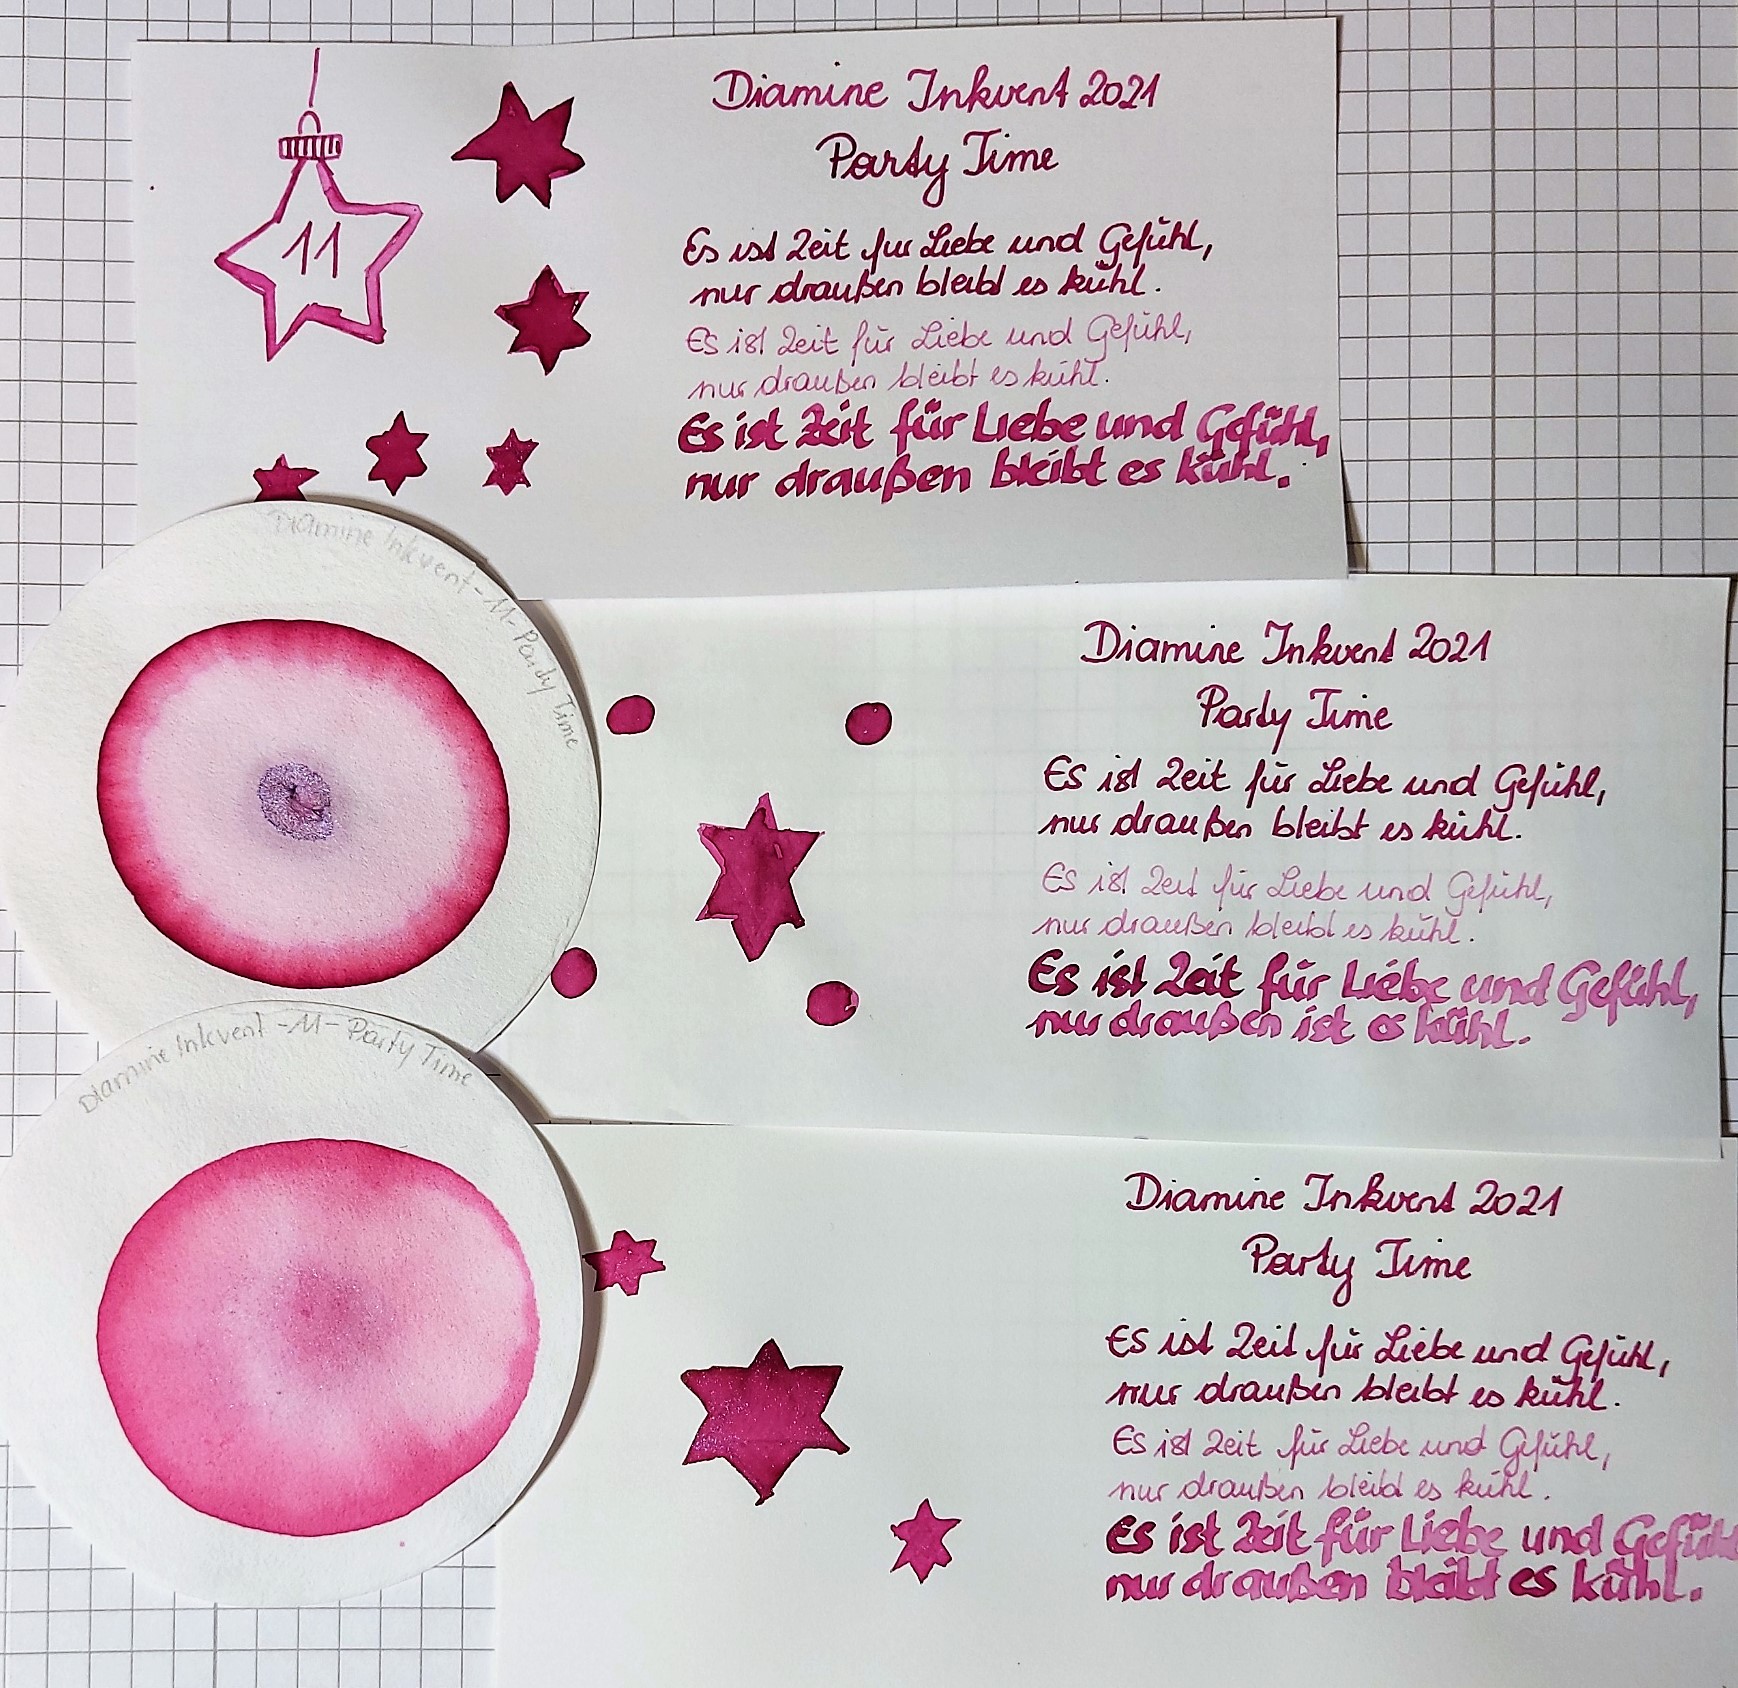 11
Diamine Inkvent 2021
Party Time
Es ist Zeit für Liebe und Gefühl,
nur draußen bleibt es kühl.
Es ist Zeit für Liebe und Gefühl,
nur draußen bleibt es kühl.
Es ist Zeit für Liebe und Gefühl,
nur draußen bleibt es kühl.
Diamine Inkvent - 11 - Party Time
Diamine Inkvent 2021
Party Time
Es ist Zeit für Liebe und Gefühl,
nur draußen bleibt es kühl.
Es ist Zeit für Liebe und Gefühl,
nur draußen bleibt es kühl.
Es ist Zeit für Liebe und Gefühl,
nur draußen ist es kühl.
Diamine Inkvent - 11 - Party Time
Diamine Inkvent 2021
Party Time
Es ist Zeit für Liebe und Gefühl,
nur draußen bleibt es kühl.
Es ist Zeit für Liebe und Gefühl,
nur draußen bleibt es kühl.
Es ist Zeit für Liebe und Gefühl
nur draußen bleibt es kühl.